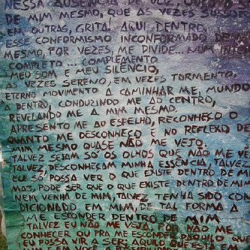 NESSA
DE MIM MESMO, QUE AS VEZES SUSSURRA
EM OUTRAS, GRITA. AQUI, DENTRO,
ESSE CONFORMISMO INCONFORMADO DE
MESMO, POR VEZES, ME DIVIDE... NUM
COMPLETO... COMPLEMENTO,
MEU SOM E MEU SILÊNCIO.
VEZES SERENO, EM VEZES TORMENTO.
ETERNO MOVIMENTO A CAMINHAR ME, MUNDO
DENTRO, CONDUZINDO ME AO CENTRO,
REVELANDO ME A MIM MESMO.
APRESENTO ME AO ESPELHO, RECONHEÇO O
QUANTO ME DESCONHEÇO NO REFLEXO
MESMO QUASE NÃO ME VEJO.
TALVEZ SEJAM SÓ OS OLHOS QUE NÃO ME
TALVEZ, DESCONHEÇAM MINHA ESSÊNCIA, TALVEZ
EU SÓ POSSA VER O QUE EXISTE DENTRO DE MIM
MAS, PODE SER QUE O QUE EXISTE DENTRO DE MIM
NEM VENHA DE MIM, TALVEZ TENHA SIDO CON
DICIONADO EM MIM, DE TAL FORMA A
ESCONDER DENTRO DE MIM
TALVEZ EU NÃO VEJA, POR NÃO ME
CONHECER OU PRA ME ESCONDER DO QUE
EU POSSA VIR A SER, AQUILO DESPIDO